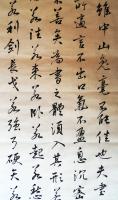 雖中山兔毫不能佳也夫書
所適言不出口氣不盈息沉密
不善矣為書之體須入其形若
若來若臥若起若愁
若利劍長戈若強弓硬矢若